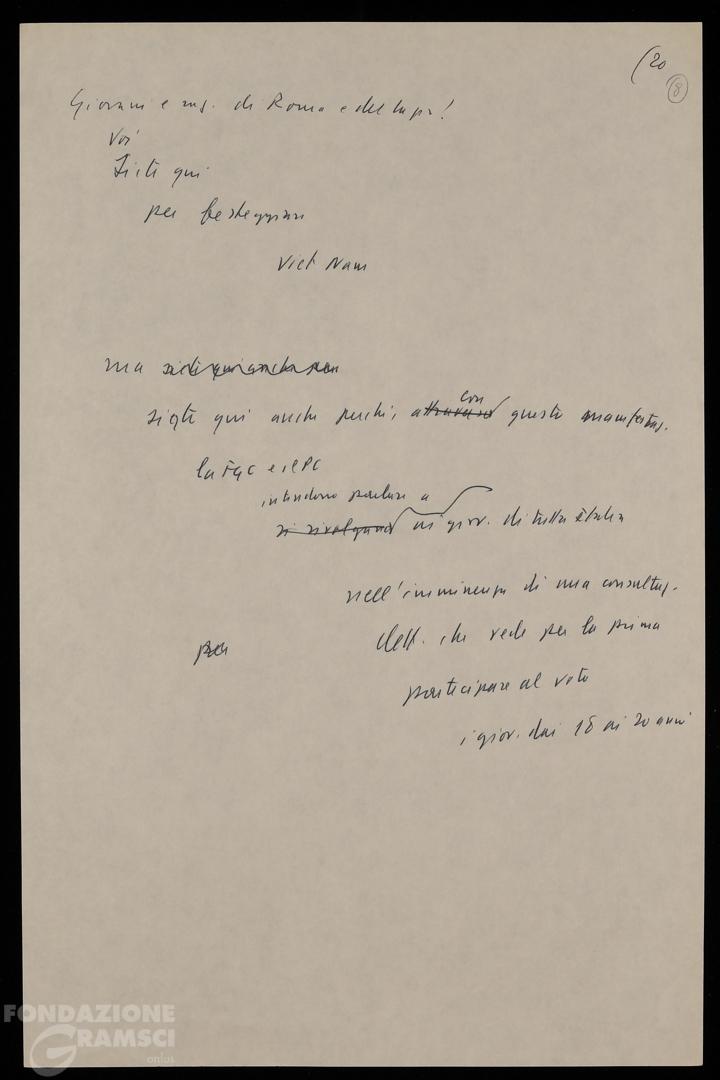 (20
8
Giovani e rag. di Roma e del Lazio!
Voi
siete qui
per festeggiare
Viet Nam
ma siete qui anche per
siete qui anche perché, attraverso con questa manifestaz.
la FGC e il PC
intendono parlare a
si rivolgono ai giov. di tutta Italia
nell'imminenza di una consultaz.
elett. che vede per la prima
per
partecipare al voto
i giov. dai 18 ai 20 anni
FONDAZIONE
GRAMSCI
onlus